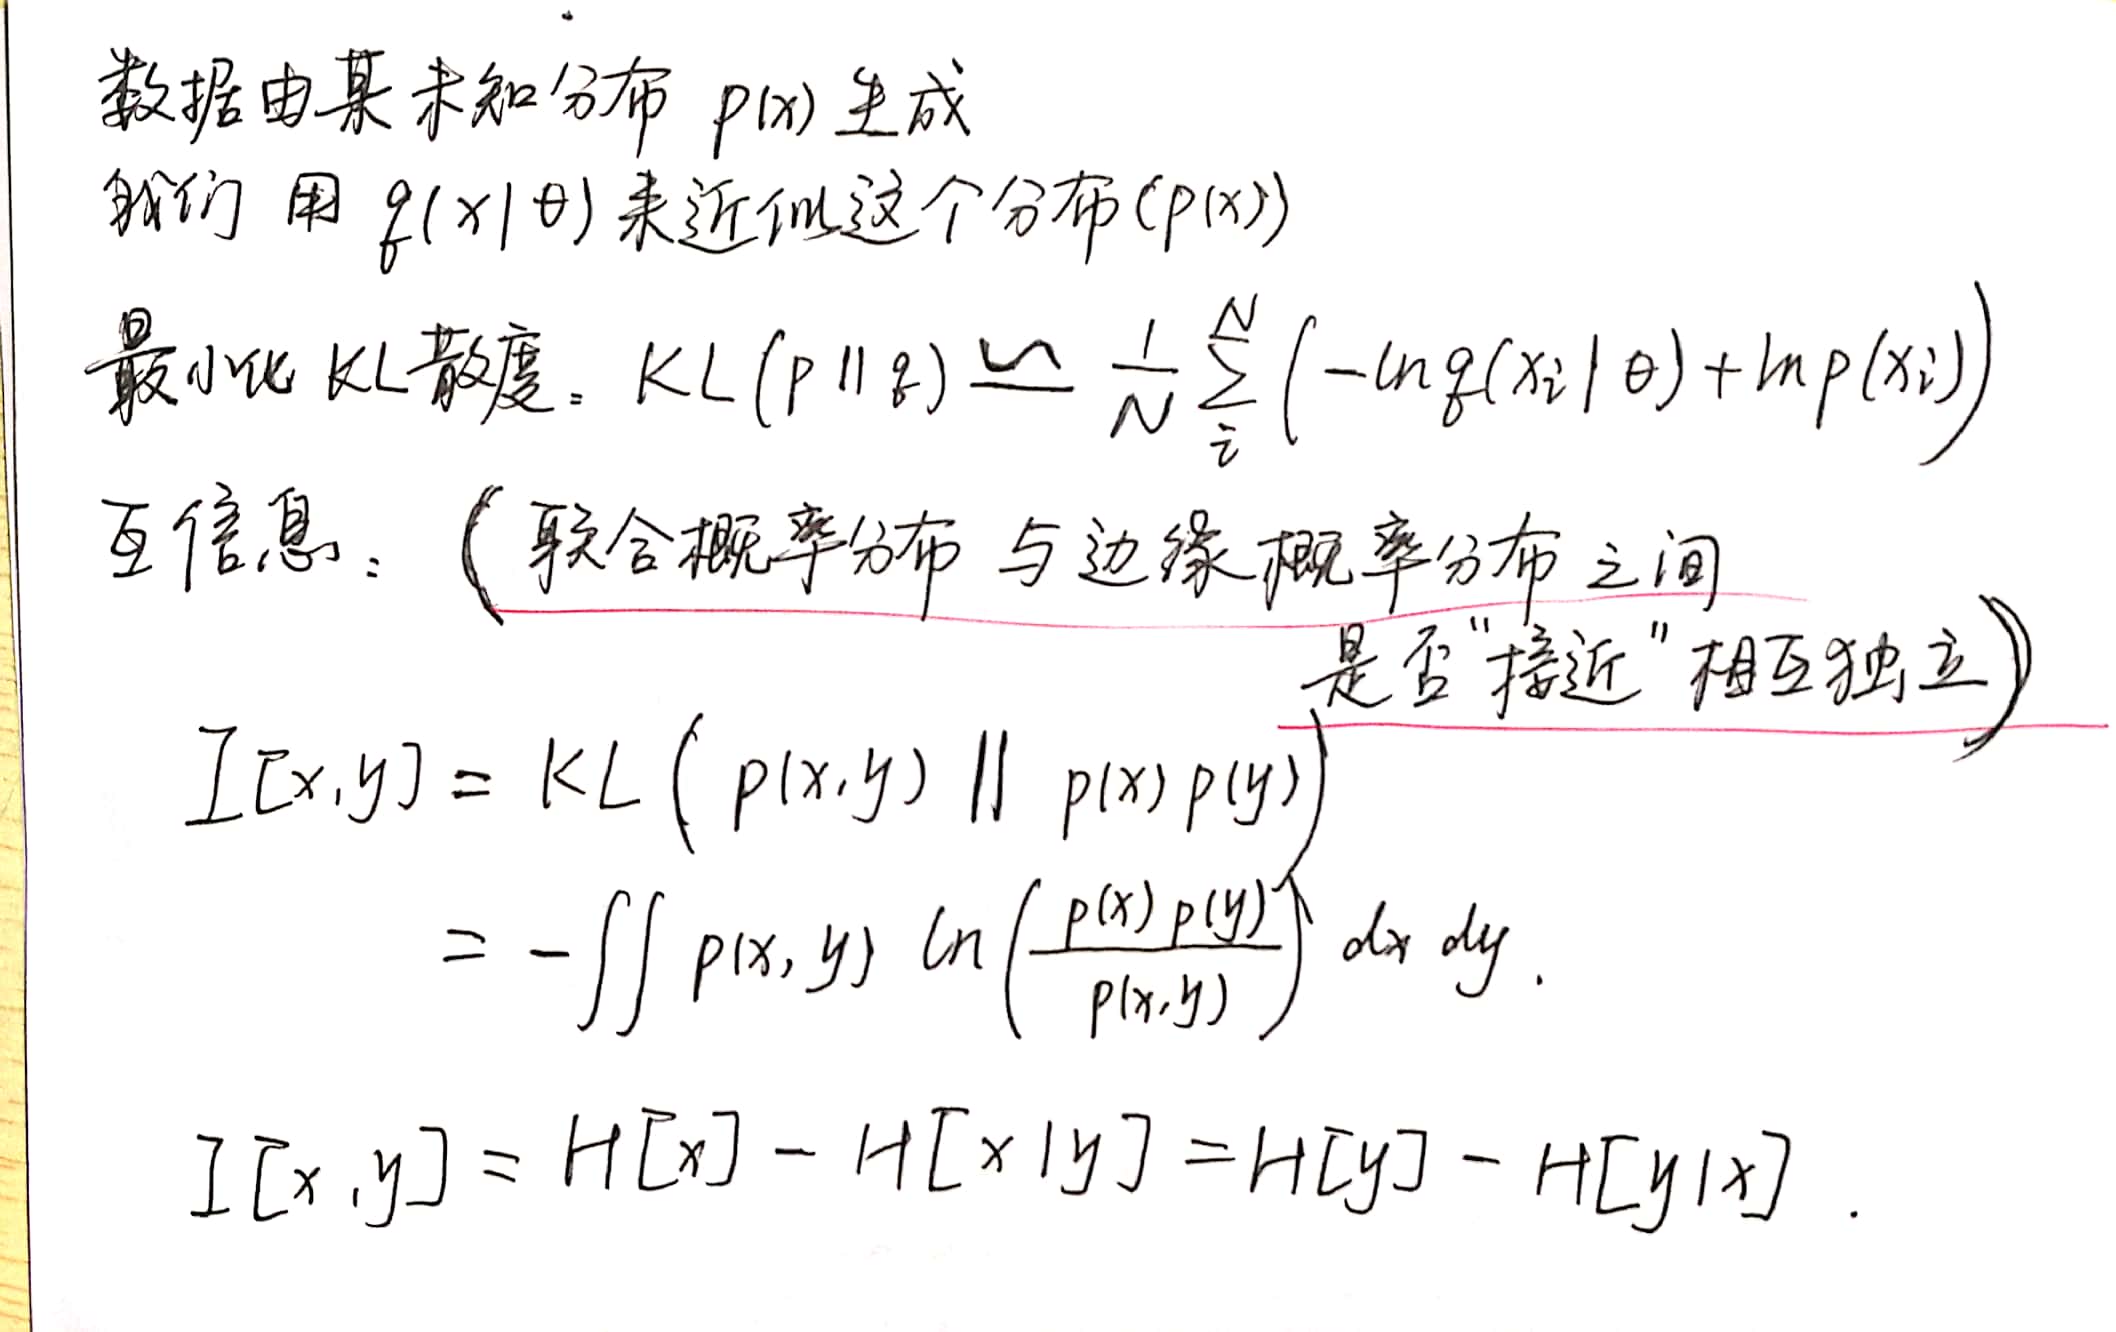 数据由某未知分布 p(x) 生成
我们用 q(x|θ) 来近似这个分布(p(x))
最小化 KL散度: KL(p||q) ≌ 1/N ∑_i^N (-ln q(x_i|θ) + ln p(x_i))
互信息: (联合概率分布与边缘概率分布之间
是否"接近"相互独立)
I[x,y] = KL( p(x,y) || p(x) p(y))
= -∬ p(x,y) ln( p(x) p(y) / p(x,y) ) dx dy.
I[x,y] = H[x] - H[x|y] = H[y] - H[y|x].